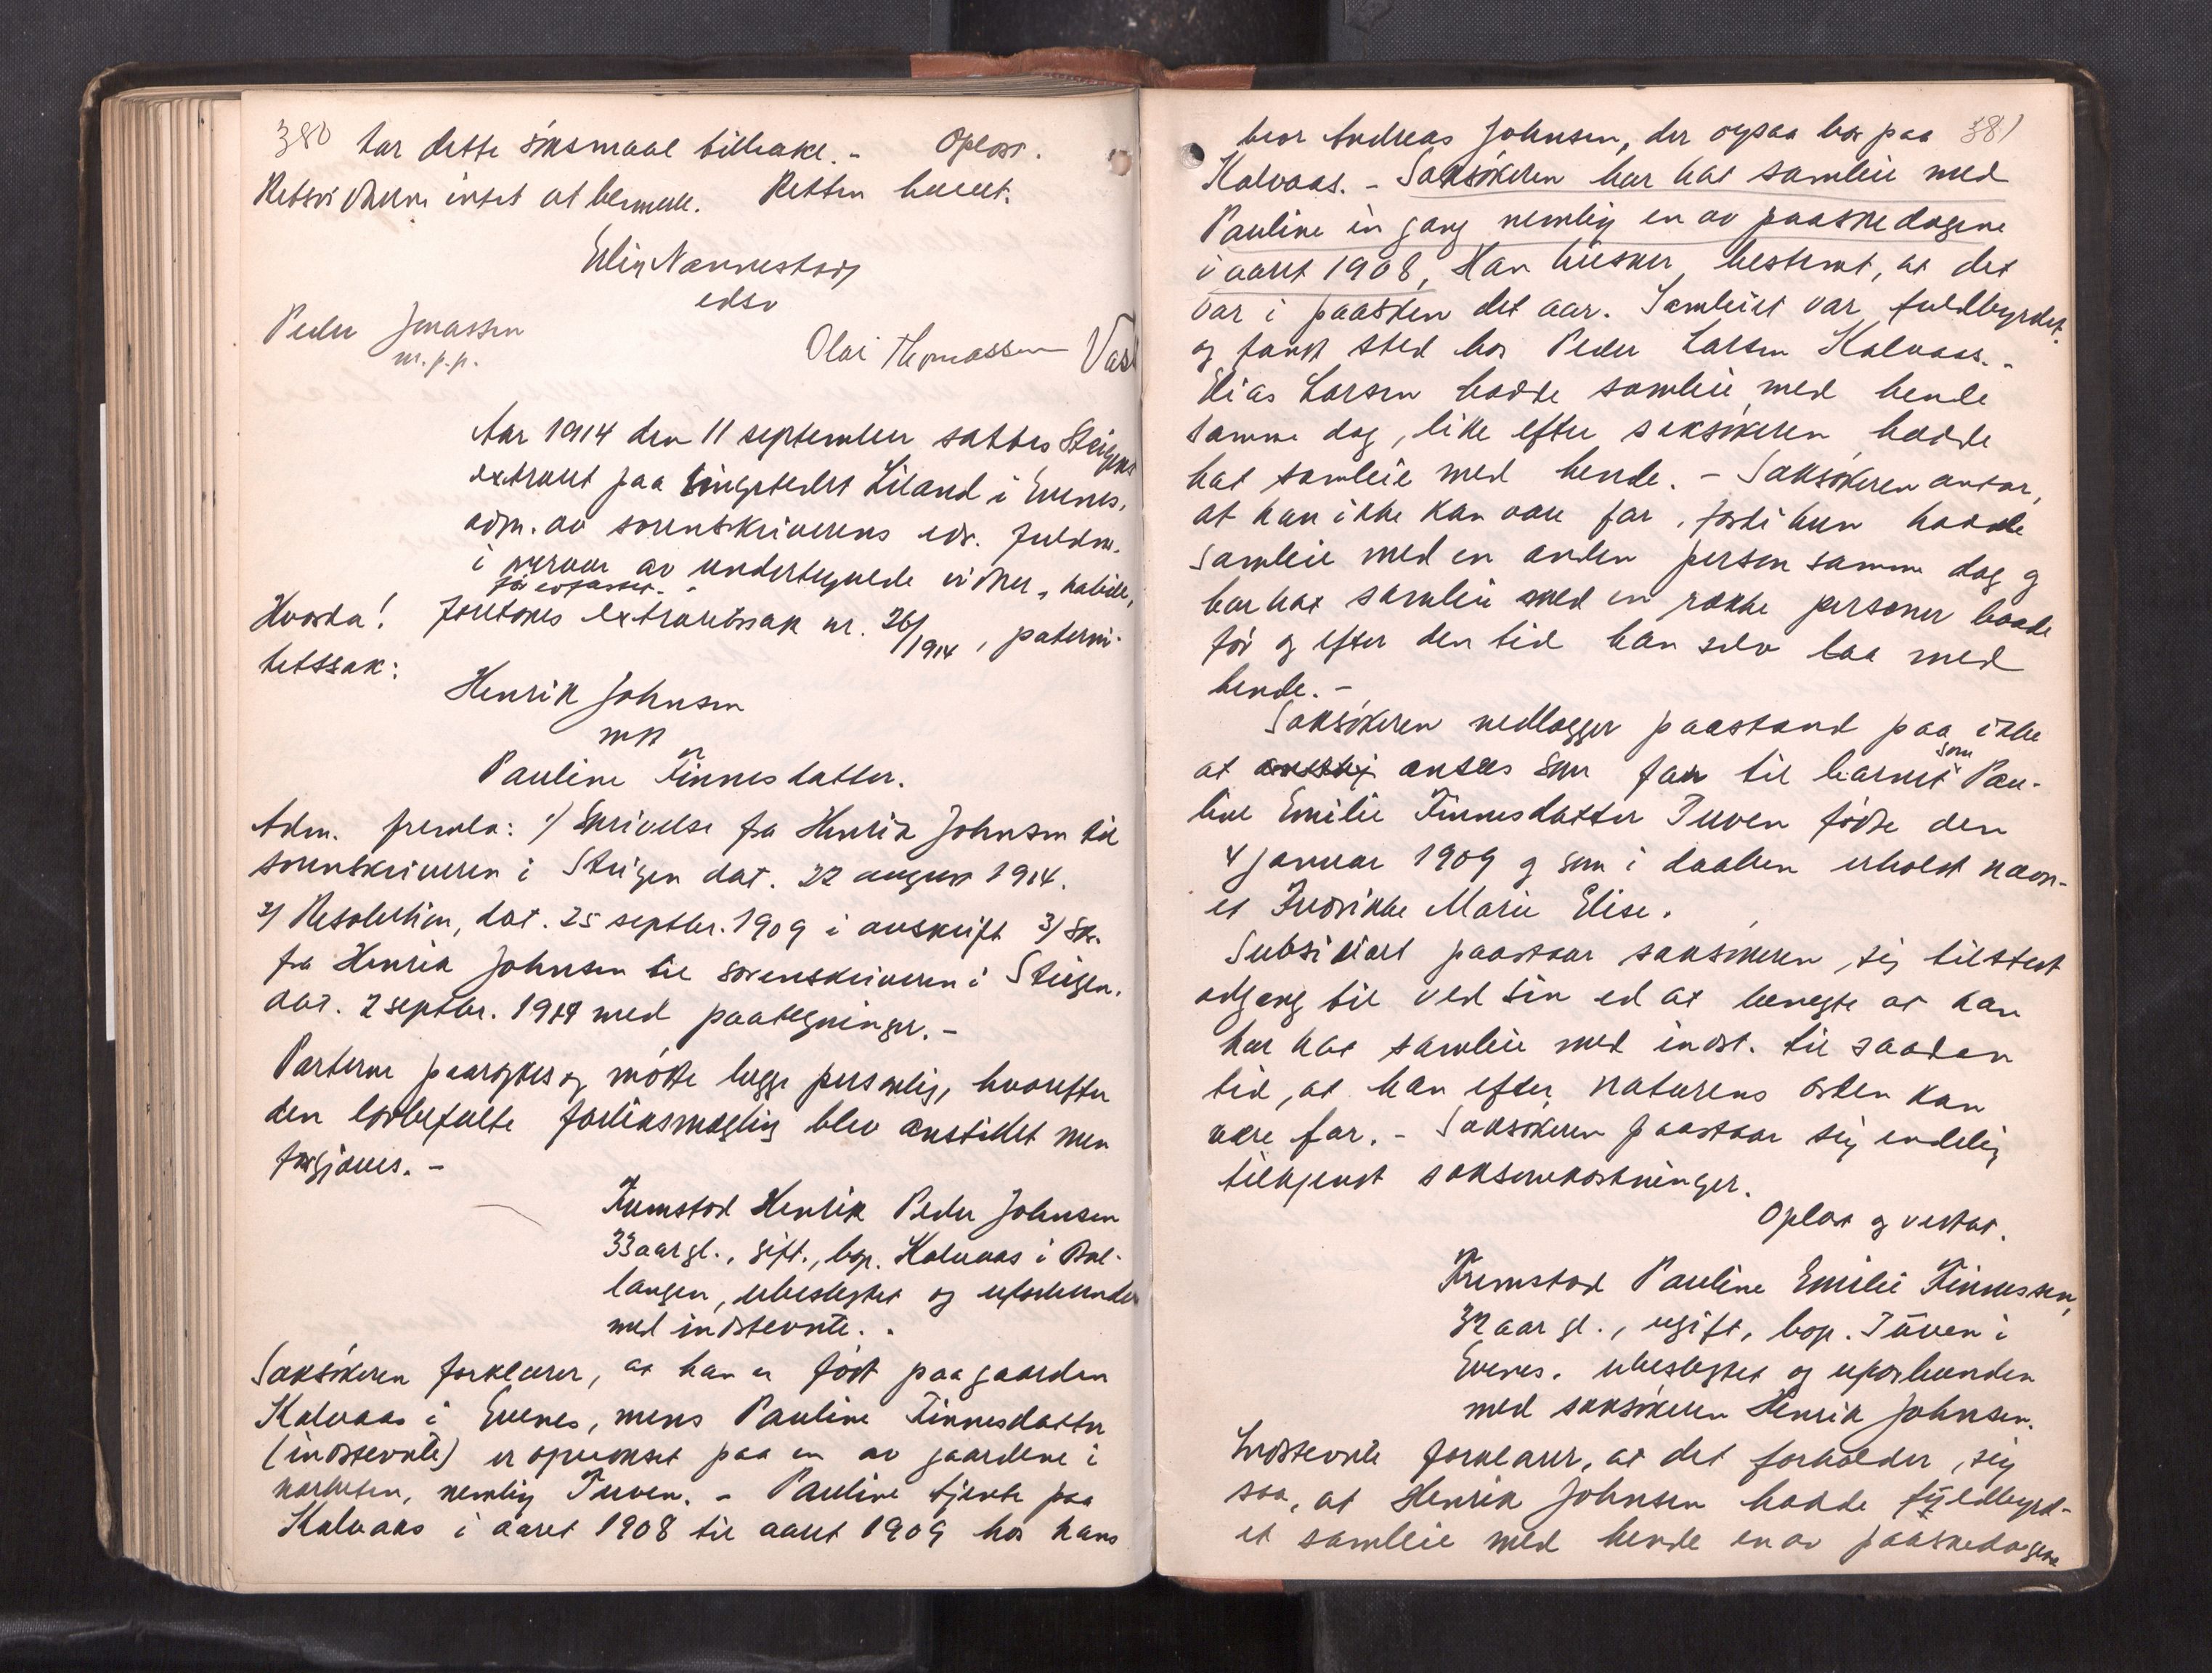 380 tar dette søksmaal tilbake. - Oplæst.
Retsvidnerne intet at bemerke. Retten hævet.
Erling Nannestad
edsv
Peder Jonassen
m. p. p.
Olai Thomassen
Aar 1914 den 11 september sattes Steigens
extraret paa tingstedet Liland i Evenes,
adm. av sorenskriverens edsv. fuldm.
i nærvær av undertegnede vidner, 
Hvorda! Foretokes extraretssak nr. 26/1914, paterni-
tetssak:
Henrik Johnsen
mot
Pauline Finnesdatter.
Adm. fremla: 1/ Skrivelse fra Henrik Johnsen til
sorenskriveren i Steigen dat. 22 august 1914.
2/ Resolution, dat. 25 septbr. 1909 i avskrift 3/ Skr.
fra Henrik Johnsen til sorenskriveren i Steigen.
dat. 2 septbr. 1914 med paategninger. -
Parterne paaroptes og møtte begge personlig, hvorefter
den lovbefalte forliksmægling blev anstillet men
forgjæves. -
Fremstod Henrik Peder Johnsen
33 aar gl., gift., bop. Kalvaas i Bal-
langen, ubeslegtet og uforbunden
med indstevnte. -
Saksøkeren forklarer, at han er født paa gaarden
Kalvaas i Evenes, mens Pauline Finnesdatter
(indstevnte) er opvokset paa en av gaardene i
nærheten, nemlig Tuven. - Pauline tjente paa
Kalvaas i aaret 1908 til aaret 1909 hos hans
bror Andreas Johnsen, der ogsaa bor paa 381
Kalvaas. - Saksøkeren har hat samleie med
Pauline én gang nemlig en av paaskedagene
i aaret 1908, Han husker bestemt, at det
var i paasken det aar. Samleiet var fuldbyrdet
og fandt sted hos Peder Larsen Kalvaas. -
Elias Larsen hadde samleie med hende
samme dag, like efter saksøkeren hadde
hat samleie med hende. - Saksøkeren antar,
at han ikke kan være far, fordi hun hadde
samleie med en anden person samme dag og
har hat samleie med en række personer baade
før og efter den tid han selv laa med
hende. -
Saksøkeren nedlægger paastand paa ikke
at ansees som far til barnet som Pau-
line Emilie Finnesdatter Tuven fødte den
4 januar 1909 og som i daaben erholdt navn-
et Fredrikke Marie Elise.
Subsidiært paastaar saksøkeren sig tilstedt
adgang til ved sin ed at benegte at han
har hat samleie med indst. til saadan
tid, at han efter naturens orden kan
være far. - Saksøkeren paastaar sig endelig
tilkjendt saksomkostninger.
Oplæst og vedtat.
Fremstod Pauline Emilie Finnessen,
32 aar gl., ugift, bop. Tuven i
Evenes. ubeslegtet og uforbunden
med saksøkeren Henrik Johnsen.
Indstevnte forklarer, at det forholder sig
saa, at Henrik Johnsen hadde fuldbyrd-
et samleie med hende en av paaskedagene